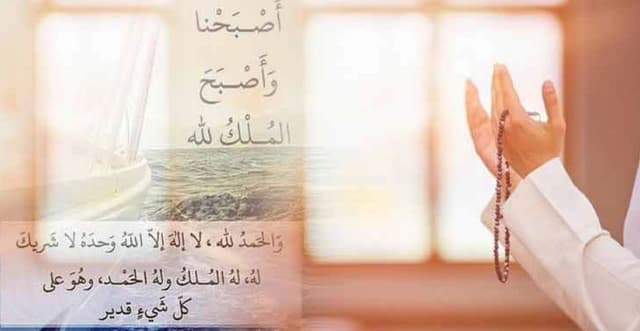 أَصْـبَحْنا
وَأَصْـبَحَ
المُـلْكُ لله
وَالحَمدُ لله ، لا إلهَ إلاّ اللّهُ وَحدَهُ لا شَريكَ
لهُ، لهُ المُـلكُ ولهُ الحَمْـد، وهُوَ على
كلّ شَيءٍ قدير